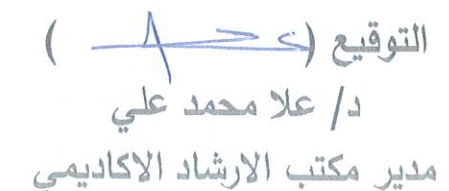 التوقيع ( )
د/ علا محمد علي
مدير مكتب الارشاد الاكاديمي